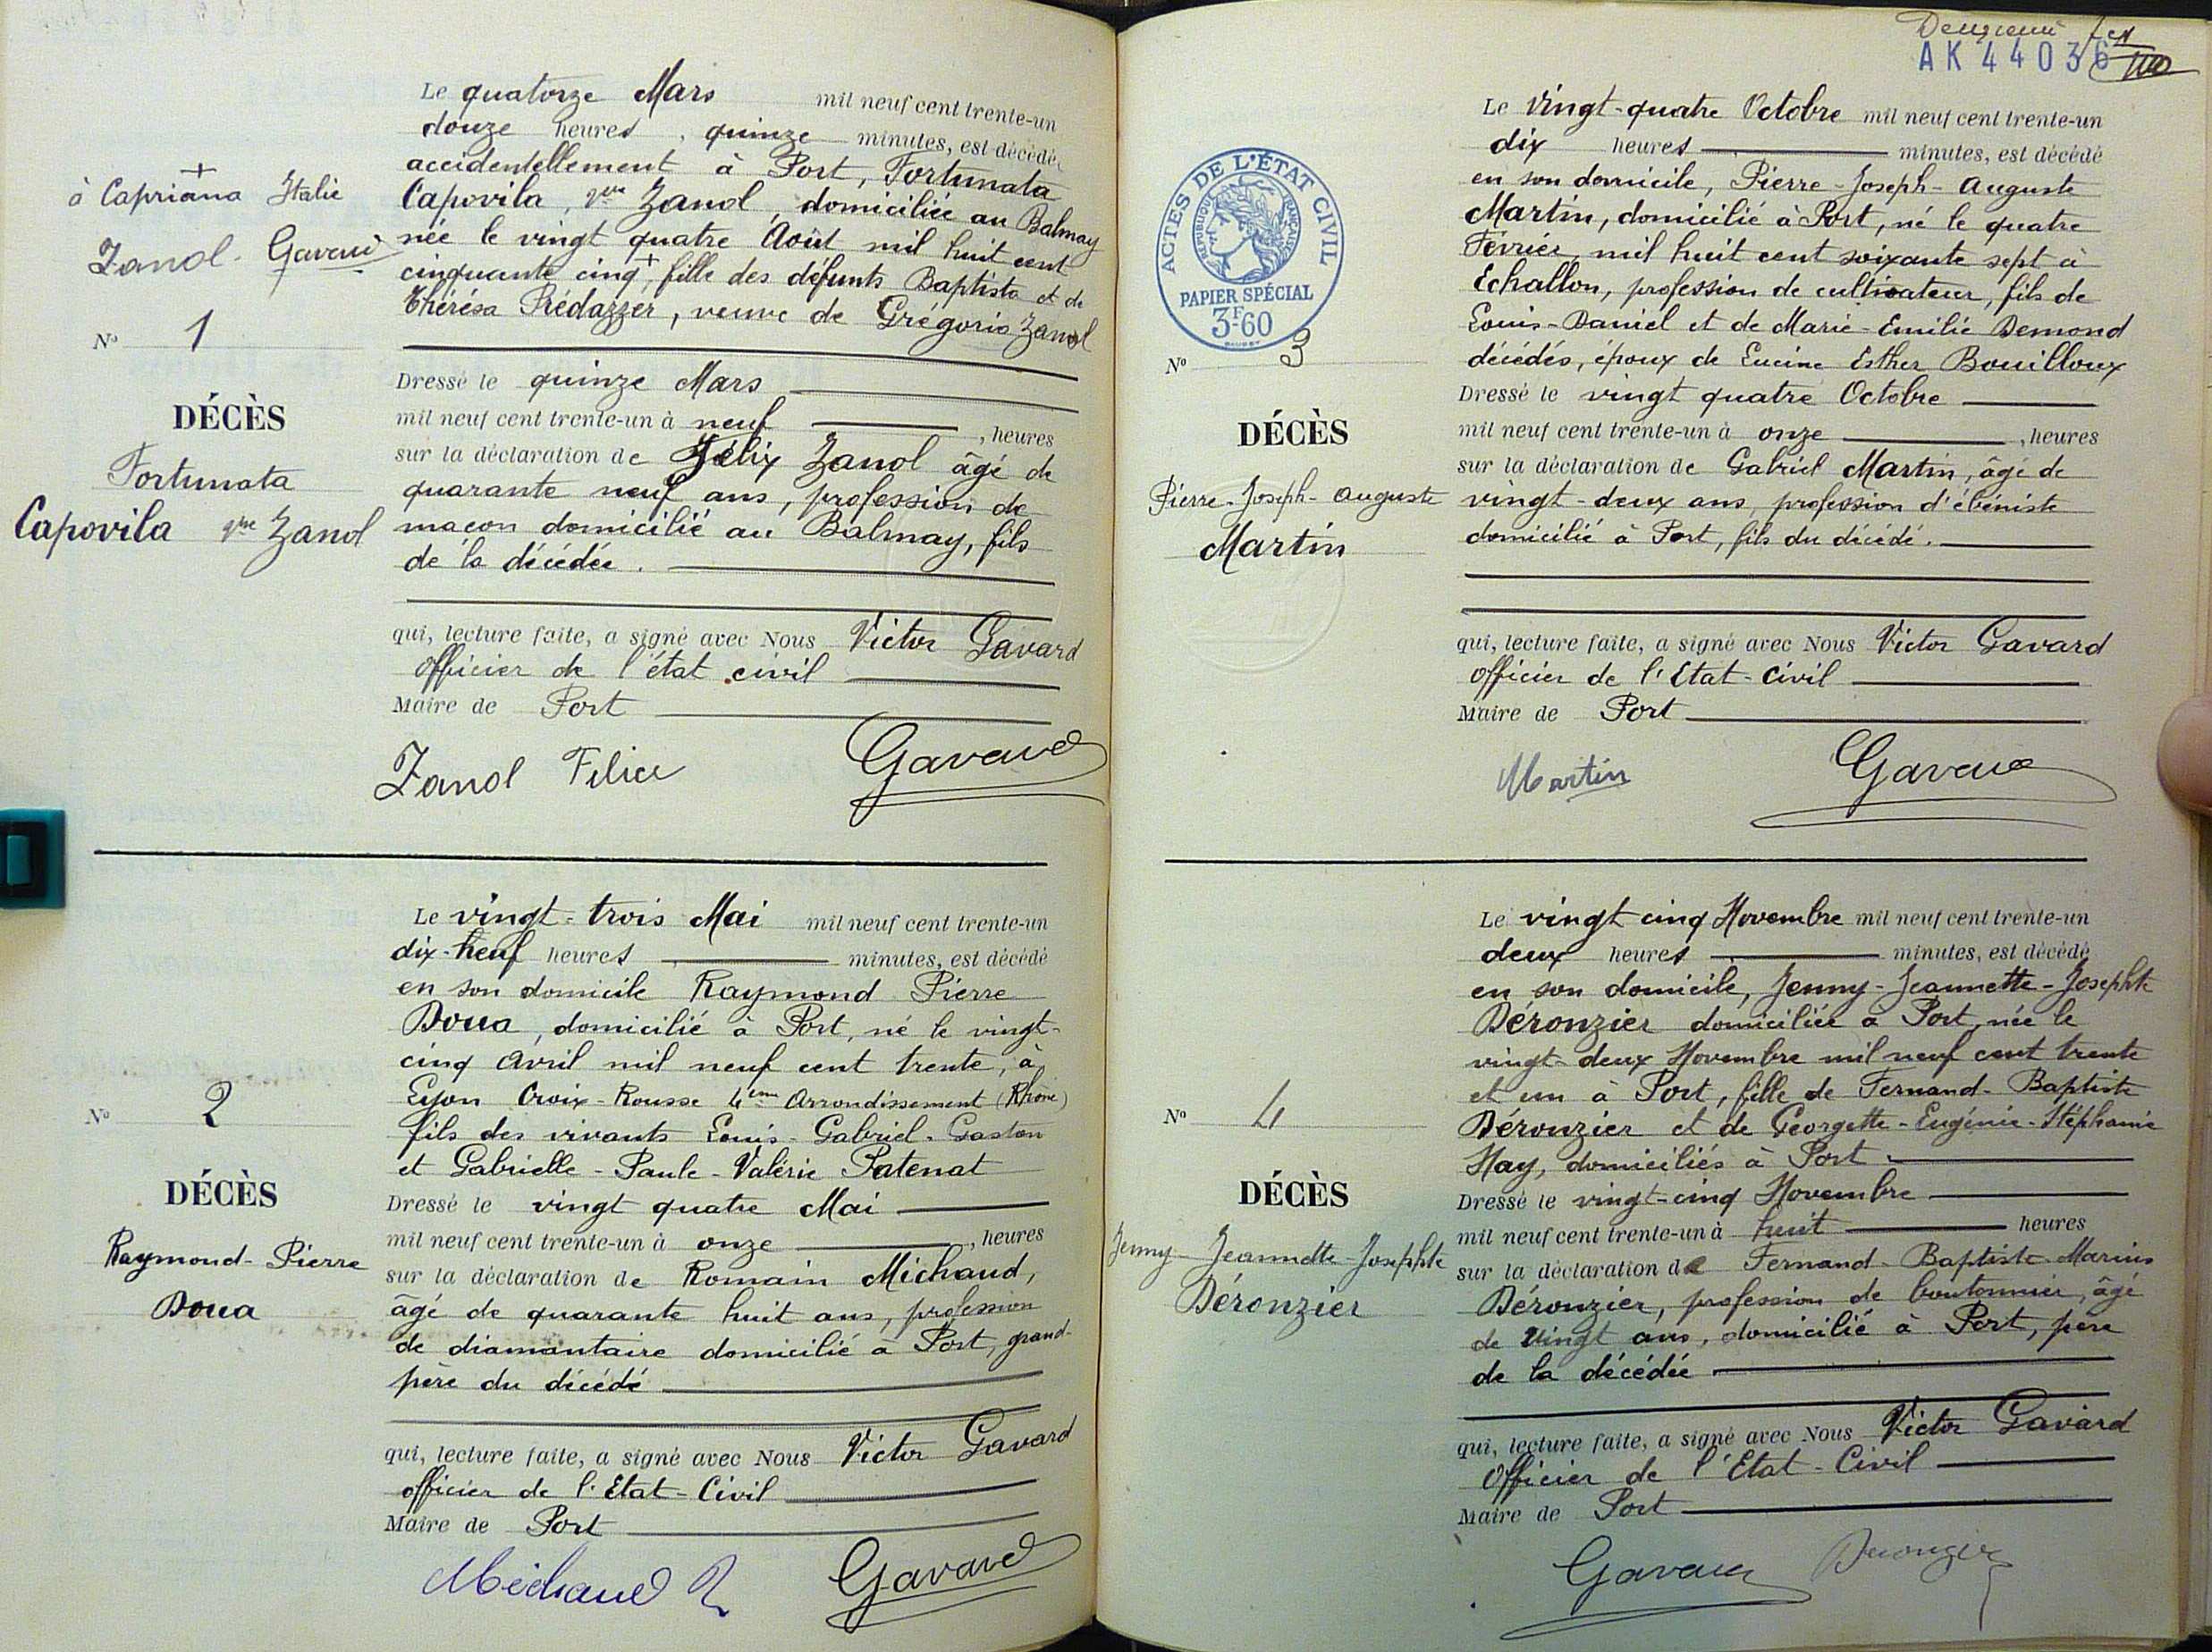 Le quatorze Mars mil neuf cent trente-un
douze heures, quinze minutes, est décédé
accidentellement à Port, Fortunata
Capovila, vve Zanol, domiciliée au Balmay
née le vingt quatre Août mil huit cent
cinquante cinq +, fille des défunts Baptista et de
Thérésa Prédazzer, veuve de Grégorio Zanol
+
à Capriana Italie
Zanol - Gavard
N° 1
DÉCÈS
Fortunata
Capovila vve Zanol
Dressé le quinze Mars
mil neuf cent trente-un à neuf, heures
sur la déclaration de Félix Zanol âgé de
quarante neuf ans, profession de
maçon domicilié au Balmay, fils
de la décédée.
qui, lecture faite, a signé avec Nous Victor Gavard
officier de l'état civil
Maire de Port
Zanol Felice Gavard
Le vingt-trois Mai mil neuf cent trente-un
dix-neuf heures minutes, est décédé
en son domicile Raymond Pierre
Doua, domicilié à Port, né le vingt-
cinq Avril mil neuf cent trente, à
Lyon Croix-Rousse 4ème Arrondissement (Rhône)
fils des vivants Louis-Gabriel-Gaston
et Gabrielle-Paule-Valérie Patenat
N° 2
DÉCÈS
Raymond-Pierre
Doua
Dressé le vingt quatre Mai
mil neuf cent trente-un à onze, heures
sur la déclaration de Romain Michaud,
âgé de quarante huit ans, profession
de diamantaire domicilié à Port, grand-
père du décédé
qui, lecture faite, a signé avec Nous Victor Gavard
officier de l'Etat-Civil
Maire de Port
Michaud R Gavard
Deuxième
AK 44036
Le vingt-quatre Octobre mil neuf cent trente-un
dix heures minutes, est décédé
en son domicile, Pierre-Joseph-Auguste
Martin, domicilié à Port, né le quatre
Février mil huit cent soixante sept à
Echallon, profession de cultivateur, fils de
Louis-Daniel et de Marie-Emilie Demond
décédés, époux de Lucine Esther Bouilloux
ACTES DE L'ÉTAT CIVIL
RÉPUBLIQUE FRANÇAISE
PAPIER SPÉCIAL
3F60
N° 3
DÉCÈS
Pierre-Joseph-Auguste
Martin
Dressé le vingt quatre Octobre
mil neuf cent trente-un à onze, heures
sur la déclaration de Gabriel Martin, âgé de
vingt-deux ans, profession d'ébéniste
domicilié à Port, fils du décédé.
qui, lecture faite, a signé avec Nous Victor Gavard
officier de l'Etat-Civil
Maire de Port
Martin Gavard
Le vingt cinq Novembre mil neuf cent trente-un
deux heures minutes, est décédé
en son domicile, Jenny-Jeannette-Josephte
Déronzier domiciliée à Port, née le
vingt-deux Novembre mil neuf cent trente
et un à Port, fille de Fernand-Baptiste
Déronzier et de Georgette-Eugénie-Stéphanie
Hay, domiciliés à Port
N° 4
DÉCÈS
Jenny-Jeannette-Josephte
Déronzier
Dressé le vingt-cinq Novembre
mil neuf cent trente-un à huit heures
sur la déclaration de Fernand-Baptiste-Marius
Déronzier, profession de boutonnier, âgé
de vingt ans, domicilié à Port, père
de la décédée
qui, lecture faite, a signé avec Nous Victor Gavard
officier de l'Etat-Civil
Maire de Port
Gavard Deronzier